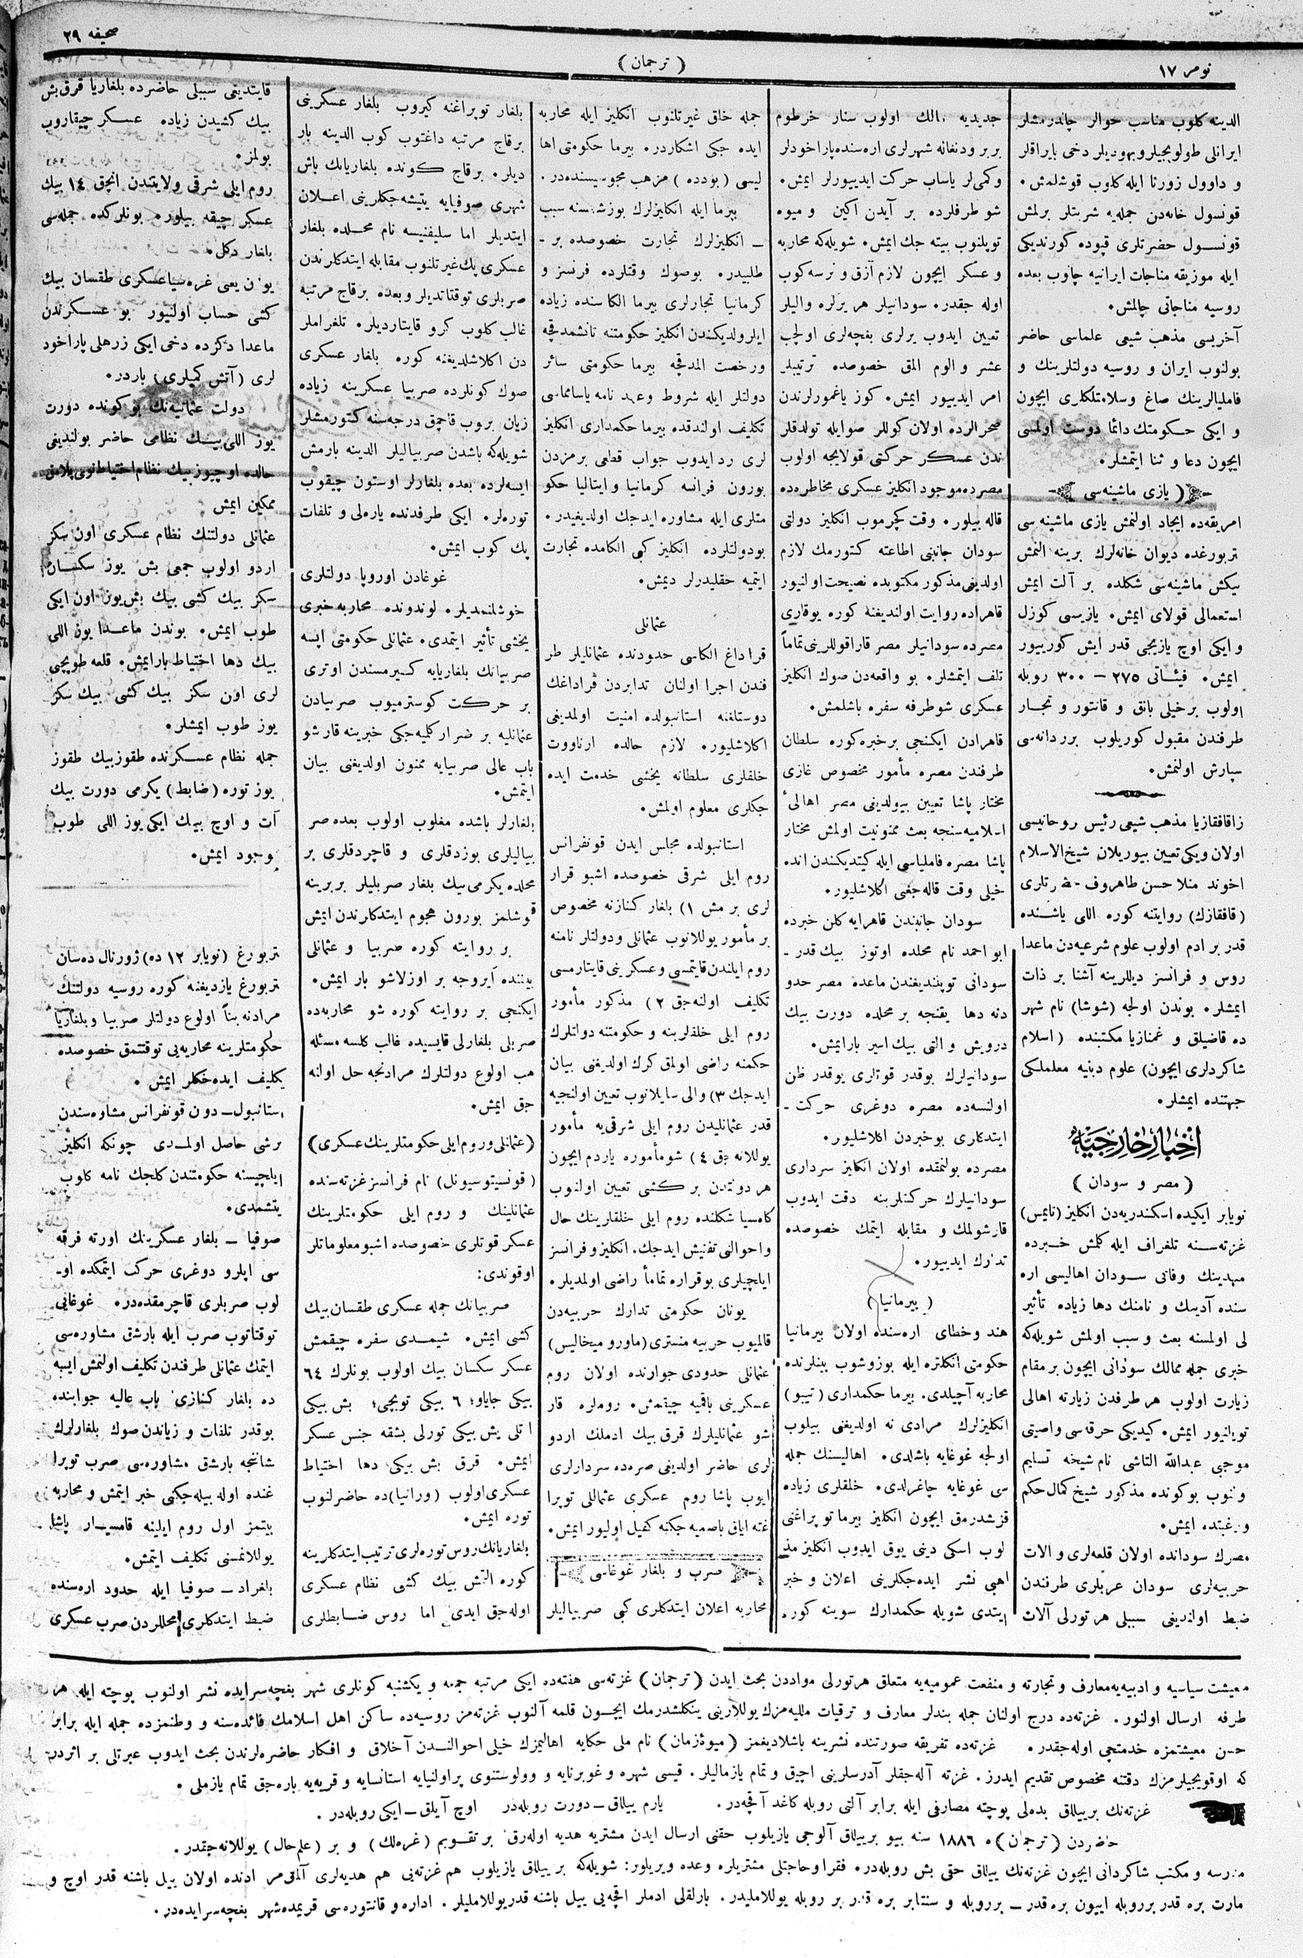 نومر ١٧
( ترجمان )
صحیفه ٢٩
الدینه کلوب مناسب حوالر چاندرمشلر
ایرانلی طولوبجیلر ویهودیلر دخی بایراقلر
و داوول زورنا ایله کلوب قوشلمش.
قونسول خانه‌دن جمله‌یه شربتلر برلمش
قونسول حضرتلری قپوده کورندیکی
ایله موزیقه مناجات ایرانیه چاوب بعده
روسیه مناجاتی چالمش.
آخریسی مذهب شیعی علماسی حاضر
بولنوب ایران و روسیه دولتلرینك و
فامیلیالرینك صاغ وسلامتلکلری ایچون
و ایکی حکومتك دائما دوست اولمسی
ایچون دعا و ثنا ایتمشلر.
( یازی ماشینه‌سی )
امریقه‌ده ایجاد اولنمش یازی ماشینه سی
تربورغده دیوان خانه‌لرك برینه النمش
تیکش ماشینه‌سی شکلده بر آلت ایمش
استعمالی قولای ایمش. یازیسی کوزل
و ایکی اوچ یازیجی قدر ایش کوربیور
ایمش. فیئاتی ٢٧٥ — ٣٠٠ روبله
اولوب برخیلی بانق و قانتور و تجار
طرفندن مقبول کوریلوب بررذانه‌سی
سپارش اولنمش.
زاقافقازیا مذهب شیعی رئیس روحانیسی
اولان ویکی تعیین بیوریلان شیخ الاسلام
اخوند منلا حسن طاهروف حضرتلری
(قافقازك) روایتنه کوره اللی یاشنده
قدر بر ادم اولوب علوم شرعیه‌دن ماعدا
روس و فرانسز دیللرینه آشنا بر ذات
ایمشلر. بوندن اولجه (شوشا) نام شهر
ده قاضیلق و غمنازیا مکتبنده (اسلام
شاکردلری ایچون) علوم دینیه معلملکی
جهتنده ایمشلر.
اخبار خارجیه
( مصر و سودان )
نویابر ایکیده اسکندریه‌دن انکلیز (تایمس)
غزته‌سنه تلغراف ایله کلمش خبرده
مهدینك وفاتی سودان اهالیسی اره
سنده آدینك و نامنك دها زیاده تأثیر
لی اولمسنه بعث و سبب اولمش شویله‌که
خبری جمله ممالك سودانی ایچون بر مقام
زیارت اولوب هر طرفدن زیارته اهالی
توپلانیور ایمش. کیدیکی حرقاسی واصیتی
موجبی عبدالله التاشی نام شیخه تسلیم
ونوب بوکونده مذکور شیخ کمال حکم
ورغبتده ایمش.
مصرك سودانده اولان قلعه‌لری و الات
حربیه‌لری سودان عربلری طرفندن
ضبط اولندیغی سببلی هر تورلی آلات
جدیدیه مالك اولوب سنار خرطوم
بربر ودنغانه شهرلری اره‌سنده پاراخودلر
وکمی‌لر یاساب حرکت ایدییورلر ایمش.
شو طرفلرده بر آیدن اکین و میوه
توپلنوب بیته جك ایمش. شویله‌که محاربه
و عسکر ایچون لازم آزق و نرسه کوب
اوله جقدر. سودانیلر هر یرلره والیلر
تعیین ایدوب یرلری بغچه‌لری اولچب
عشر والوم المق خصوصده ترتیبلر
امر ایدییور ایمش. کوز یاغمورلرندن
صحرالرده اولان کوللر صوایله تولدقلر
ندن عسکر حرکتی قولایجه اولوب
مصرده موجود انکلیز عسکری مخاطره‌ده
قاله بیلور. وقت کچرموب انکلیز دولتی
سودان جانبی اطاعته کتورمك لازم
اولدیغی مذکور مکتوبده نصیحت اولنیور
قاهراده روایت اولندیغنه کوره یوقاری
مصرده سودانیلر مصر قاراقوللرینی تماماً
تلف ایتمشلر. بو واقعه‌دن صوك انکلیز
عسکری شوطرفه سفره باشلمش.
قاهرادن ایکنجی بر خبره کوره سلطان
طرفندن مصره مأمور مخصوص غازی
مختار پاشا تعیین بیولدینی مصر اهالیٔ
اسلامیه سنجه بعث ممنونیت اولمش مختار
پاشا مصره فامیلیاسی ایله کیتدیکندن انده
خیلی وقت قاله‌جغی اکلاشلیور.
سودان جانبندن قاهرایه کلن خبرده
ابو احمد نام محلده اوتوز بیك قدر
سودانی توپلندیغندن ماعده مصر حدو
دنه دها یقنجه بر محلده دورت بیك
درویش و التی بیك اسیر بارایمش.
سودانیلرك بوقدر قوتلری یوقدر ظن
اولنسه‌ده مصره دوغری حرکت
ایتدکلری بوخبردن اکلاشلیور.
مصرده بولنمقده اولان انکلیز سرداری
سودانیلرك حرکتلرینه دقت ایدوب
قارشولمك و مقابله ایتمك خصوصده
تدارك ایدییور.
( بیرمانیا )
هند وخطای اره‌سنده اولان بیرمانیا
حکومتی انکلتره ایله بوزوشوب بینلرنده
محاربه آچیلدی. بیرما حکمداری (تیبو)
انکلیزلرك مرادی نه اولدیغنی بیلوب
اولجه غوغایه باشلدی. اهالیسنك جمله
سی غوغایه چاغرلدی. خلقلری زیاده
قزشدرمق ایچون انکلیز بیرما توپراغنی
لوب اسکی دینی یوق ایدوب انکلیز مذ
اهبی نشر ایده‌جکلرینی اعلان و خبر
ایتدی شویله حکمدارك سوینه کوره
جمله خلق غیرتلنوب انکلیز ایله محاربه
ایده جکی اشکاردر. بیرما حکومتی اها
لیسی (بودده) مزهب مجوسیسنده‌در.
بیرما ایله انکلیزلرك بوزشه‌سنه سبب
— انکلیزلرك تجارت خصوصده بر
طلبیدر. بوصوك وقتلرده فرنسز و
کرمانیا تجارلری بیرما الکاسنده زیاده
ایلرولدیکندن انکلیز حکومتنه تانشمدقچه
ورخصت المدقچه بیرما حکومتی سائر
دولتلر ایله شروط وعهد نامه یاسامامسی
تکلیف اولندقده بیرما حکمداری انکلیز
لری رد ایدوب جواب قطعی برمزدن
بورون فرانسه کرمانیا و ایتالیا حکو
متلری ایله مشاوره ایدجك اولدیغیدر.
بودولتلرده انکلیز کبی الکامده تجارت
ایتمیه حقلیدرلر دیمش.
عثمانلی
قراداغ الکاسی حدودنده عثمانلیلر طر
فندن اجرا اولنان تدابردن قراداغك
دوستلغنه استانبولده امنیت اولمدیغی
اکلاشلیور. لازم حالده ارناووت
خلقلری سلطانه یخشی خدمت ایده
جکلری معلوم اولمش.
استانبولده مجلس ایدن قونفرانس
روم ایلی شرقی خصوصده اشبو قرار
لری بر مش ١) بلغار کنازنه مخصوص
بر مأمور یوللانوب عثمانلی ودولتلر نامنه
روم ایلندن قایتمسی وعسکرینی قایتارمسی
تکلیف اولنه‌جق ٢) مذکور مأمور
روم ایلی خلقلرینه و حکومتنه دولتلرك
حکمنه راضی اولمق کرك اولدیغنی بیان
ایدجك ٣) والی سایلانوب تعیین اولنجیه
قدر عثمانلیدن روم ایلی شرقی‌یه مأمور
یوللانه جق ٤) شومأموره یاردم ایچون
هر دولتدن بر کشی تعیین اولنوب
کامسیا شکلنده روم ایلی خلقلرینك حال
واحوالی تفتیش ایدجك. انکلیز وفرانسز
ایلچیلری بوقراره تماماً راضی اولمدیلر.
یونان حکومتی تدارك حربیه‌دن
قالمیوب حربیه منستری (ماورو میخالیس)
عثمانلی حدودی جوارنده اولان روم
عسکرینی باقمیه چیقمش. روملره قار
شو عثمانلیلرك قرق بیك ادملك اردو
لری حاضر اولدیغی صره‌ده سردارلری
ایوب پاشا روم عسکری عثمانلی توپرا
غنه ایاق باصمیه جکنه کفیل اولیور ایمش.
صرب و بلغار غوغاسی
محاربه اعلان ایتدکلری کبی صربیالیلر
بلغار توپراغنه کیروب بلغار عسکرینی
برقاج مرتبه داغتوب کوب الدینه بار
دیلر. برقاج کونده بلغاریانك باش
شهری صوفیایه یتیشه‌جکلرینی اعلان
ایتدیلر اما سلیفنیسه نام محلده بلغار
عسکری پك غیرتلنوب مقابله ایتدکلرندن
صربلری توقتاتدیلر وبعده برقاج مرتبه
غالب کلوب کرو قایتاردیلر. تلغراملر
دن اکلاشلدیغنه کوره بلغار عسکری
صوك کونلرده صربیا عسکرینه زیاده
زیان بروب قاچمق درجه‌سنه کتورمشلر
شویله‌که باشدن صربیالیلر الدینه بارمش
ایسه‌لرده بعده بلغارلر اوستون چیقوب
توره‌لر. ایکی طرفدنده یاره‌لی و تلفات
پك کوب ایمش.
غوغادن اوروپا دولتلری
خوشلنمدیلر. لوندونده محاربه خبری
یخشی تأثیر ایتمدی. عثمانلی حکومتی ایسه
صربیانك بلغاریایه کیرمسندن اوتری
بر حرکت کوسترمیوب صربیادن
عثمانلیه بر ضرار کلمیه‌جکی خبرینه قارشو
باب عالی صربیایه ممنون اولدیغنی بیان
ایتمش.
بلغارلر باشده مغلوب اولوب بعده صر
بیالیلری بوزدقلری و قاچردقلری بر
محلده یکرمی بیك بلغار صربلیلر بربرینه
قوشلمز بورون هجوم ایتدکلرندن ایمش
بر روایته کوره صربیا و عثمانلی
بیننده آیروجه بر اوزلاشو بار ایمش.
ایکنجی بر روایته کوره شو محاربه‌ده
صربلی بلغارلی قایسیده غالب کلسه مسئله
هب اولوغ دولتلرك مرادنجه حل اوله
جق ایمش.
(عثمانلی وروم ایلی حکومتلرینك عسکری)
(قونسیتوسیونل) نام فرانسز غزته‌سنده
عثمانلینك و روم ایلی حکومتلرینك
عسکر قوتلری خصوصده اشبو معلوماتلر
اوقوندی:
صربیانك جمله عسکری طقسان بیك
کشی ایمش. شیمدی سفره چیقمش
عسکر سکسان بیك اولوب بونلرك ٦٤
بیکی جایاو؛ ٦ بیکی توبچی؛ بش بیکی
اتلی یش بیکی تورلی بشقه جنس عسکر
ایمش. قرق بش بیکی دها احتیاط
عسکری اولوب (ورانیا)ده حاضرلنوب
توره ایمش.
بلغاریانك روس توره‌لری ترتیب ایتدکلرینه
کوره التمش بیك کشی نظام عسکری
اوله‌جق ایدی اما روس ضابطلری
قایتدیقی سببلی حاضرده بلغاریا قرق بش
بیك کشیدن زیاده عسکر چیقاروب
بولمز.
روم ایلی شرقی ولایتندن انجق ١٤ بیك
عسکر چیقه بیلوره بونلرکده جمله‌سی
بلغار دکل.
یونان یعنی غره سیا عسکری طقسان بیك
کشی حساب اولنیور بو عسکرندن
ماعدا دکزده دخی ایکی زرهلی پاراخود
لری (آتش کمیلری) باردر.
دولت عثمانیه‌نك بوکونده دورت
یوز اللی بیك نظامی حاضر بولندیغی
حالده اوچیوز بیك نظام احتیاط توپلامق
ممکن ایمش
عثمانلی دولتنك نظام عسکری اون سکز
اردو اولوب جمعی بش یوز سکسان
سکز بیك کشی بیك بش‌یوز اون ایکی
طوب ایمش. بوندن ماعدا یوز اللی
بیك دها احتیاط بارایمش. قلعه طوپچی
لری اون سکز بیك کشی بیك سکز
یوز طوب ایمشلر.
جمله نظام عسکرنده طقوز بیك طقوز
یوز توره (ضابط) یکرمی دورت بیك
آت و اوچ بیك ایکی یوز اللی طوب
موجود ایمش.
تربورغ (نویابر ١٢ ده) ژورنال ده‌سان
تربورغ یازدیغنه کوره روسیه دولتنك
مرادنه بناً اولوغ دولتلر صربیا وبلغاریا
حکومتلرینه محاربه‌یی توقتتمق خصوصده
تکلیف ایده‌جکلر ایمش.
استانبول— دون قونفرانس مشاوره‌سندن
برشی حاصل اولمدی چونکه انکلیز
ایلچیسنه حکومتندن کلجك نامه کلوب
یتشمدی.
صوفیا — بلغار عسکرینك اورته فرقه
سی ایلرو دوغری حرکت ایتمکده او
لوب صربلری قاچرمقده‌در. غوغایی
توقتاتوب صرب ایله بارشق مشاوره‌سی
ایتمك عثمانلی طرفندن تکلیف اولنمش ایسه
ده بلغار کنازی باب عالیه جوابنده
بوقدر تلفات و زیاندن صوك بلغارلرك
شاننجه بارشق مشاوره‌سی صرب توپرا
غنده اوله بیله‌جکنی خبر ایتمش و محاربه
بیتمز اول روم ایلینه قامیسار پاشا
یوللانمسنی تکلیف ایتمش.
بلغراد— صوفیا ایله حدود اره‌سنده
ضبط ایتدکلری محللردن صرب عسکری
معیشت سیاسیه و ادبیه‌یه معارف و تجارته و منفعت عمومیه‌یه متعلق هرتورلی مواددن بحث ایدن (ترجمان) غزته‌سی هفته‌ده ایکی مرتبه جمعه و یکشنبه کونلری شهر بغچه‌سرایده نشر اولنوب پوچته ایله هر
طرفه ارسال اولنور. غزته‌ده درج اولنان جمله بندلر معارف و ترقیات ملیه‌مزك یوللارینی ینکلشدرمك ایچون قلمه آلنوب غزته‌مز روسیه‌ده ساکن اهل اسلامك فائده‌سنه و وطنمزده جمله ایله برابر
حسن معیشتمزه خدمتچی اوله‌جقدر. غزته‌ده تفریقه صورتنده نشرینه باشلادیغمز (میوٓه‌زمان) نام ملی حکایه اهالیمزك خیلی احوالندن آخلاق و افکار حاضره‌لرندن بحث ایدوب عبرتلی بر اثردر
که اوقویجیلرمزك دقتنه مخصوص تقدیم ایدرز. غزته آله‌جقلر آدرسلرینی اچیق و تمام یازمالیلر. قیسی شهره و غوبرنایه و وولوستنوی پراولنیایه استانسایه و قریه‌یه باره‌جق تمام یازملی.
غزته‌نك بر ییللق بده‌لی پوچته مصارفی ایله برابر آلتی روبله کاغد آقچه‌در. یارم ییللاق—دورت روبله‌در اوچ آیلق—ایکی روبله‌در.
حاضردن (ترجمان)ه ١٨٨٦ سنه بیو بر ییللاق آلوجی یازیلوب حقنی ارسال ایدن مشتریه هدیه اوله‌رق بر تقویم (غره‌لك) و بر (علم حال) یوللانه‌جقدر.
مدرسه و مکتب شاکردانی ایچون غزته‌نك ییللق حقی بش روبله‌در. فقرا وحاجتلی مشتریلره وعده ویریلور: شویله‌که بر ییللاق یازیلوب هم غزته‌یی هم هدیه‌لری آلمق‌مر ادنده اولان ییل باشنه قدر اوچ و
مارت بره قدر برروبله اییون بره قدر — برروبله و سنتابر بره قدر بر روبله یوللاملیدر. بارلقلی ادملر اقچه‌یی ییل باشنه قدر یوللاملیلر. اداره و قانتوره‌سی قریمده شهر بغچه سرایده‌در.